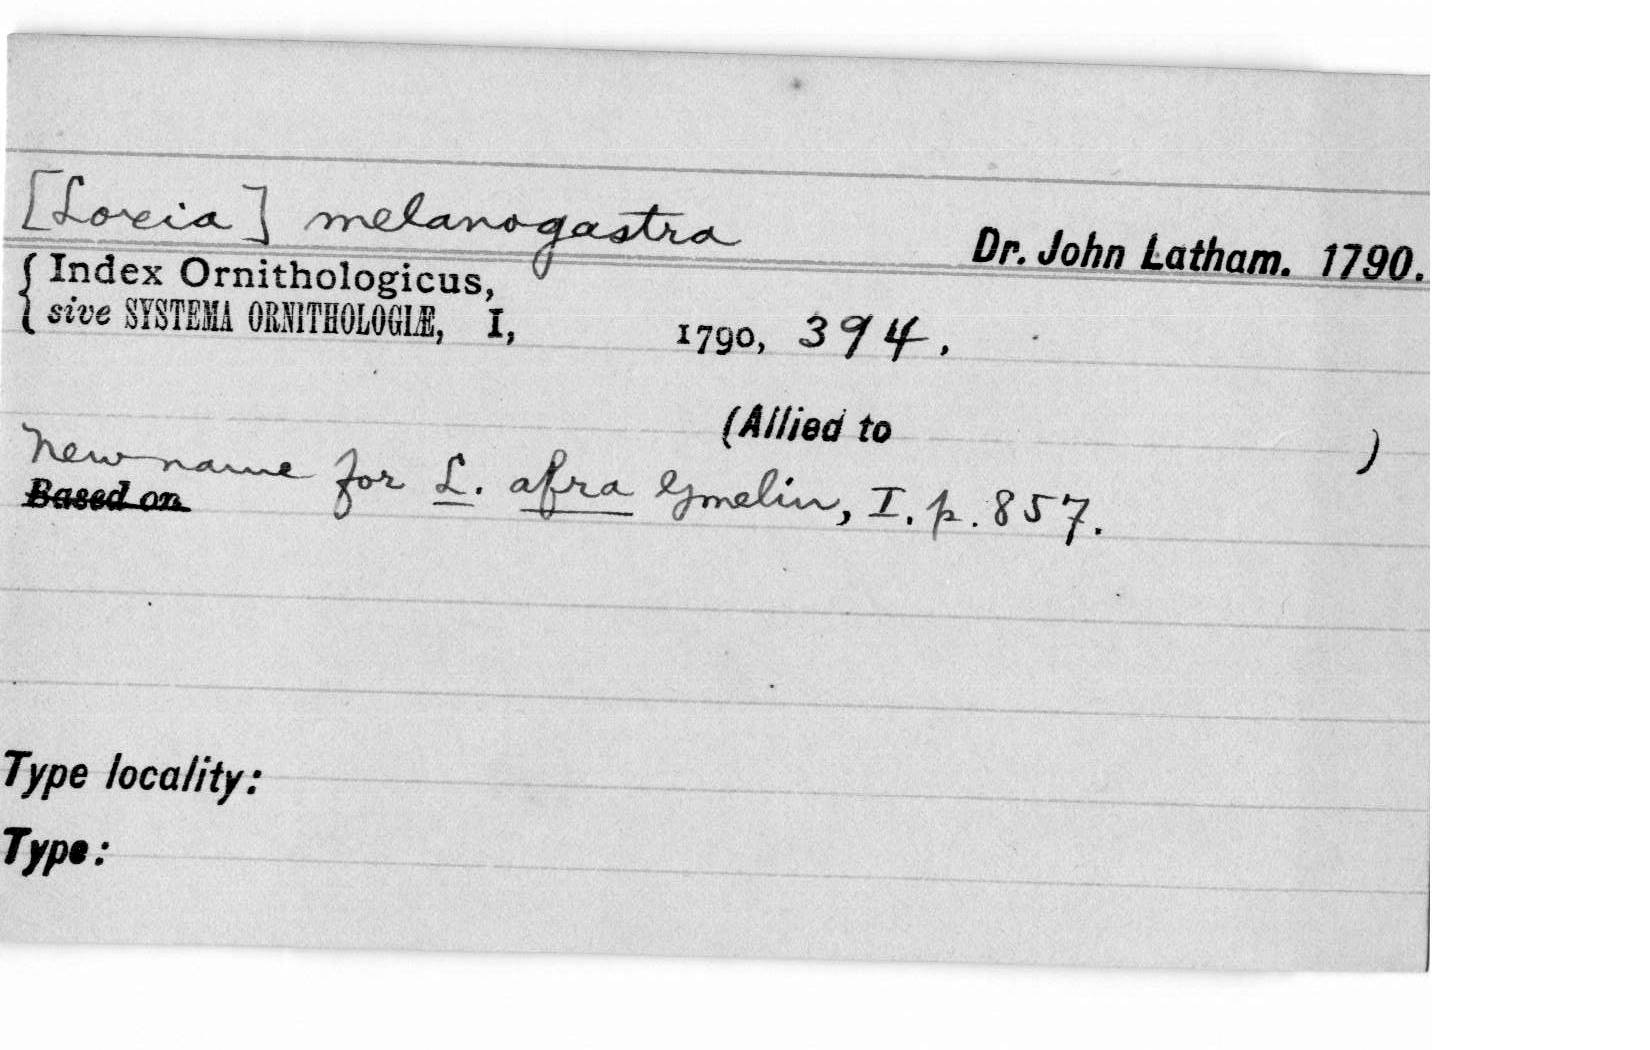 [Loxia] melanogastra Dr. John Latham. 1790.
{ Index Ornithologicus,
sive SYSTEMA ORNITHOLOGIÆ, I, 1790, 394.
(Allied to )
New name for L. afra Gmelin, I. p. 857.
Based on
Type locality:
Type: